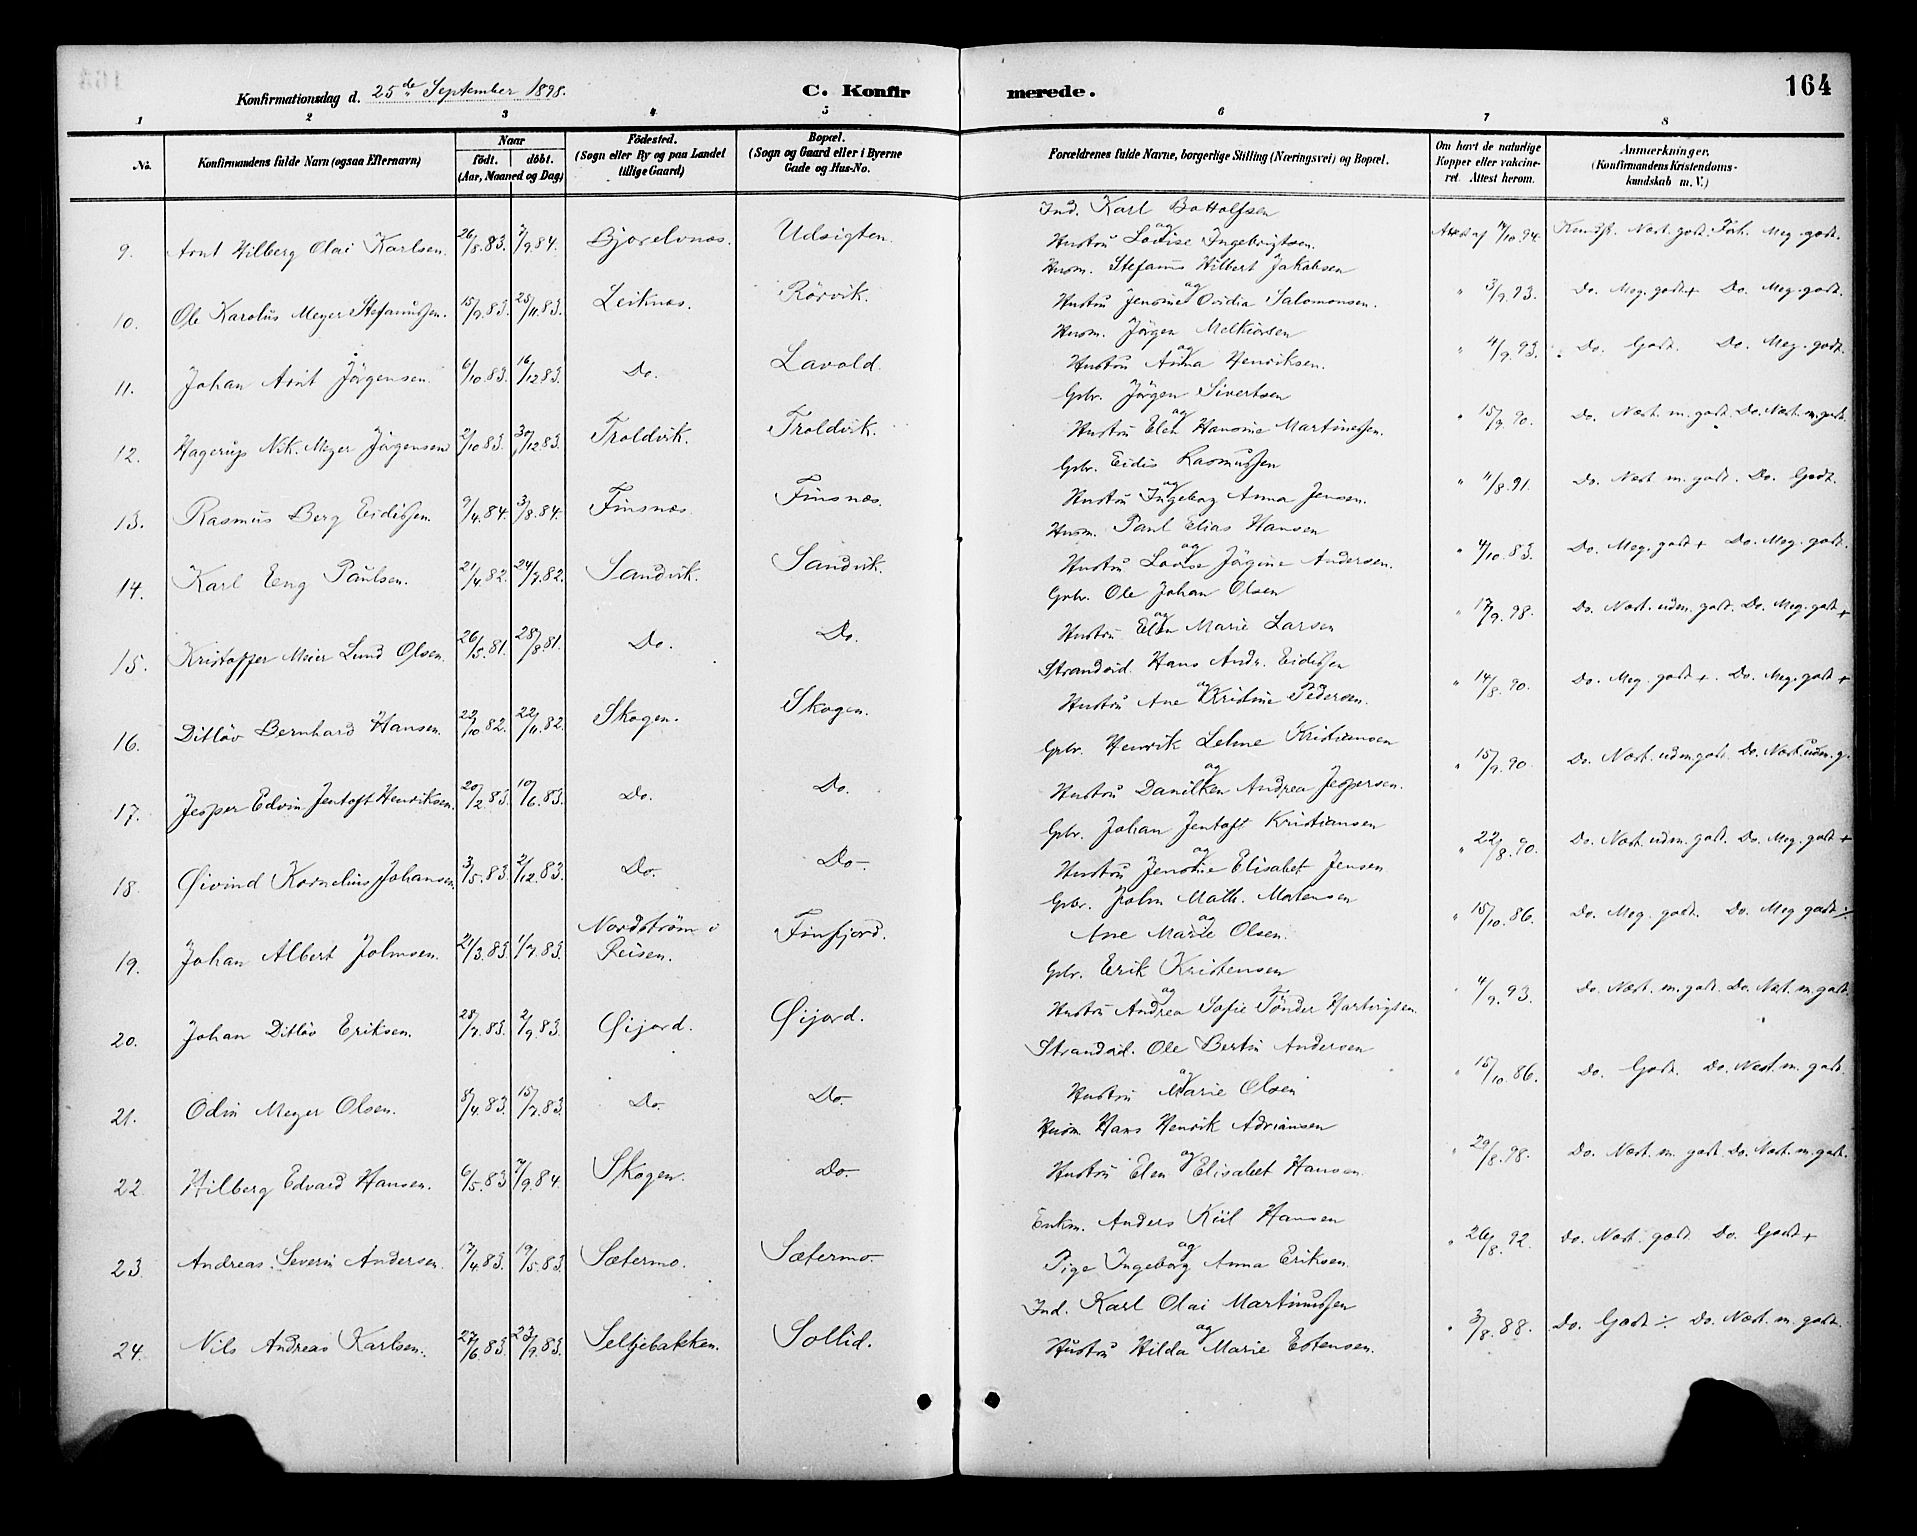 Konfirmationsdag d. 25de September 1898.
C. Konfirmerede.
164
1 2 3 4 5 6 7 8
No.
Konfirmandens fulde Navn (ogsaa Efternavn)
Naar
födt. döbt.
(Aar, Maaned og Dag)
Födested.
(Sogn eller By og paa Landet
tillige Gaard)
Bopæl.
(Sogn og Gaard eller i Byerne
Gade og Hus-No.
Forældrenes fulde Navne, borgerlige Stilling (Næringsvei) og Bopæl.
Om havt de naturlige
Kopper eller vakcine-
ret. Attest herom.
Anmærkninger,
(Konfirmandens Kristendoms-
kundskab m. V.)
Ind. Karl Bottolfsen
og
9. Arnt Hilberg Olai Karlsen. 26/8.83. 7/9.84. Bjorelvnæs. Udsigten. Hustru Lovise Ingebrigtsen. Attest af 11/10.94. Kundsk. Næst. godt. Forh. Meg. godt.
Husm. Stefanus Hilbert Jakobsen
og
10. Ole Karolus Meyer Stefanussen. 15/9.83. 25/11.83. Leiknæs. Rörvik. Hustru Jensine Ovidia Salomonsen. " 3/9.93. Do. Meg. godt + Do. Meg. godt.
Husm. Jörgen Melkiorsen
og
11. Johan Arnt Jörgensen. 6/10.83. 16/12.83. Do. Lavold. Hustru Anna Henriksen. " 4/9.93. Do. Godt. Do. Meg. godt.
Gbr. Jörgen Sivertsen
og
12. Hagerup Nik. Meyer Jörgensen 2/10.83. 30/12.83. Troldvik. Troldvik. Hustru Elen Hansine Martinussen. " 15/9.90. Do. Næst. m. godt. Do. Næst. m. godt.
Gbr. Eidis Rasmussen
og
13. Rasmus Berg Eidissen. 9/4.84. 3/8.84. Finsnæs. Finsnæs. Hustru Ingeborg Anna Jensen. " 11/8.91. Do. Næst m. godt. Do. Godt.
Husm. Paul Elias Hansen
og
14. Karl Eeng Paulsen. 21/4.82. 24/7.82. Sandvik. Sandvik. Hustru Lovise Jörgine Andersen. " 4/10.83. Do. Meg. godt + Do. Meg. godt.
Gbr. Ole Johan Olsen
og
15. Kristoffer Meier Lund Olsen. 26/5.81. 28/8.81. Do. Do. Hustru Elen Marie Larsen " 17/9.98. Do. Næst. udm. godt. Do. Meg. godt +
Strandsid. Hans Andr. Eidissen
og
16. Ditlöv Bernhard Hansen. 22/10.82. 22/11.82. Skogen. Skogen. Hustru Ane Kristine Pedersen. " 14/8.90. Do. Meg. godt +. Do. Meg. godt +
Gbr. Henrik Lehne Kristiansen
og
17. Jesper Edvin Jentoft Henriksen. 20/2.83. 10/6.83. Do. Do. Hustru Danilken Andrea Jespersen. " 15/9.90. Do. Næst. udm. godt. Do. Næst. udm. g.
Gbr. Johan Jentoft Kristiansen
og
18. Øivind Kornelius Johansen. 3/5.83. 2/12.83. Do. Do. Hustru Jensine Elisabet Jensen " 22/8.90. Do. Næst. udm. godt. Do. Meg. godt +
Gbr. John Math. Mortensen
og
19. Johan Albert Johnsen. 21/3.83. 1/7.83. Nordström i Reisen. Finfjord. Ane Marie Olsen. " 15/10.86. Do. Meg. godt. Do. Meg godt ÷
Gbr. Erik Kristensen
og
20. Johan Ditlöv Eriksen. 28/7.83. 2/9.83. Øijord. Øijord. Hustru Andrea Sofie Tönder Hartvigsen. " 4/9.93. Do. Næst. m. godt. Do. Næst. m. godt.
Strandsid. Ole Bertin Andersen
og
21. Odin Meyer Olsen. 8/4.83. 15/7.83. Do. Do. Hustru Marie Olsen " 15/10.86. Do. Godt. Do. Næst. m. godt.
Husm. Hans Henrik Adriansen
og
22. Hilberg Edvard Hansen. 6/5.83 7/9.84. Skogen. Do. Hustru Elen Elisabet Hansen. " 29/8.98. Do. Næst. m. godt. Do. Næst. m. godt.
Enkm. Anders Kiil Hansen
og
23. Andreas Severin Andersen. 17/4.83. 19/5.83. Sætermo. Sætermo. Pige Ingeborg Anna Eriksen. " 26/8.92. Do. Næst. godt. Do. Godt +
Ind. Karl Olai Martinussen
og
24. Nils Andreas Karlsen. 27/6.83. 23/9.83. Seljebakken. Sollid. Hustru Hilda Marie Estensen. " 3/8.88. Do. Godt ÷ Do. Næst. m. godt.